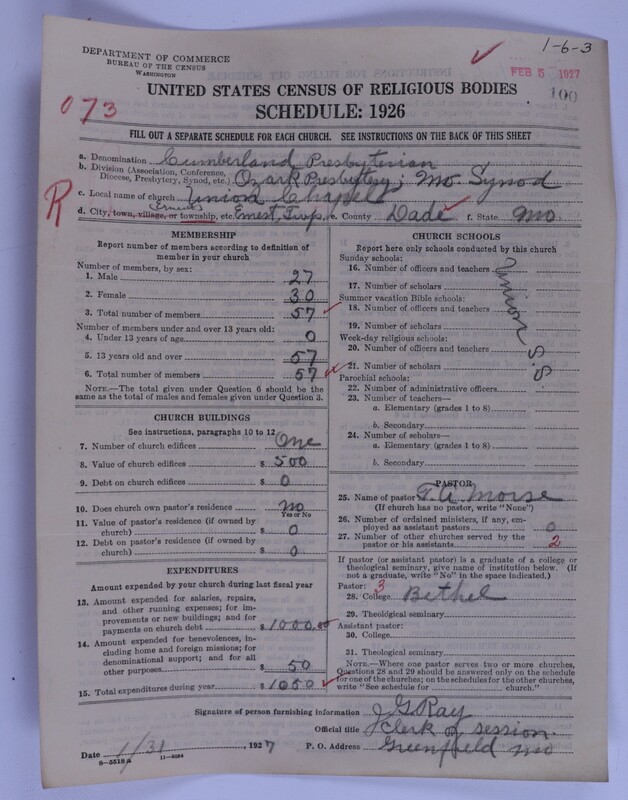 1-6-3
DEPARTMENT OF COMMERCE
BUREAU OF THE CENSUS
WASHINGTON
FEB 5 1927
100
UNITED STATES CENSUS OF RELIGIOUS BODIES
073
SCHEDULE: 1926
FILL OUT A SEPARATE SCHEDULE FOR EACH CHURCH. SEE INSTRUCTIONS ON THE BACK OF THIS SHEET
a. Denomination Cumberland Presbyterian
b. Division (Association, Conference, Diocese, Presbytery, Synod, etc.) Ozark Presbytery; Mo. Synod
R
c. Local name of church Union Chapel
d. City, town, village, or township, etc. Ernest, Twp. e. County Dade f. State Mo
MEMBERSHIP
Report number of members according to definition of
member in your church
Number of members, by sex:
1. Male 27
2. Female 30
3. Total number of members 57
Number of members under and over 13 years old:
4. Under 13 years of age 0
5. 13 years old and over 57
6. Total number of members 57
NOTE.—The total given under Question 6 should be
same as the total of males and females given under Question 3.
CHURCH BUILDINGS
See instructions, paragraphs 10 to 12
7. Number of church edifices One
8. Value of church edifices $ 500
9. Debt on church edifices $ 0
10. Does church own pastor's residence no
Yes or No
11. Value of pastor's residence (if owned by
church) $ 0
12. Debt on pastor's residence (if owned by
church) $ 0
EXPENDITURES
Amount expended by your church during last fiscal year
13. Amount expended for salaries, repairs,
and other running expenses; for im-
provements or new buildings; and for
payments on church debt $ 1000.00
14. Amount expended for benevolences, in-
cluding home and foreign missions; for
denominational support; and for all
other purposes $ 50
15. Total expenditures during year $ 1050
CHURCH SCHOOLS
Report here only schools conducted by this church
Sunday schools:
16. Number of officers and teachers
17. Number of scholars
Summer vacation Bible schools:
18. Number of officers and teachers
19. Number of scholars
Week-day religious schools:
20. Number of officers and teachers
21. Number of scholars
Parochial schools:
22. Number of administrative officers
23. Number of teachers—
a. Elementary (grades 1 to 8)
b. Secondary
24. Number of scholars—
a. Elementary (grades 1 to 8)
b. Secondary
Union S.S
PASTOR
25. Name of pastor T. A Morse
(If church has no pastor, write "None")
26. Number of ordained ministers, if any, em-
ployed as assistant pastors 0
27. Number of other churches served by the
pastor or his assistants 2
If pastor (or assistant pastor) is a graduate of a college or
theological seminary, give name of institution below. (If
not a graduate, write "No" in the space indicated.)
Pastor: 3
28. College Bethel
29. Theological seminary
Assistant pastor:
30. College
31. Theological seminary
NOTE.—Where one pastor serves two or more churches,
Questions 28 and 29 should be answered only on the schedule
for one of the churches; on the schedules for the other churches,
write "See schedule for church."
Signature of person furnishing information J G. Ray
Official title Clerk of session
Date 1/31, 1927 P. O. Address Greenfield Mo
8-5518a 11-4084